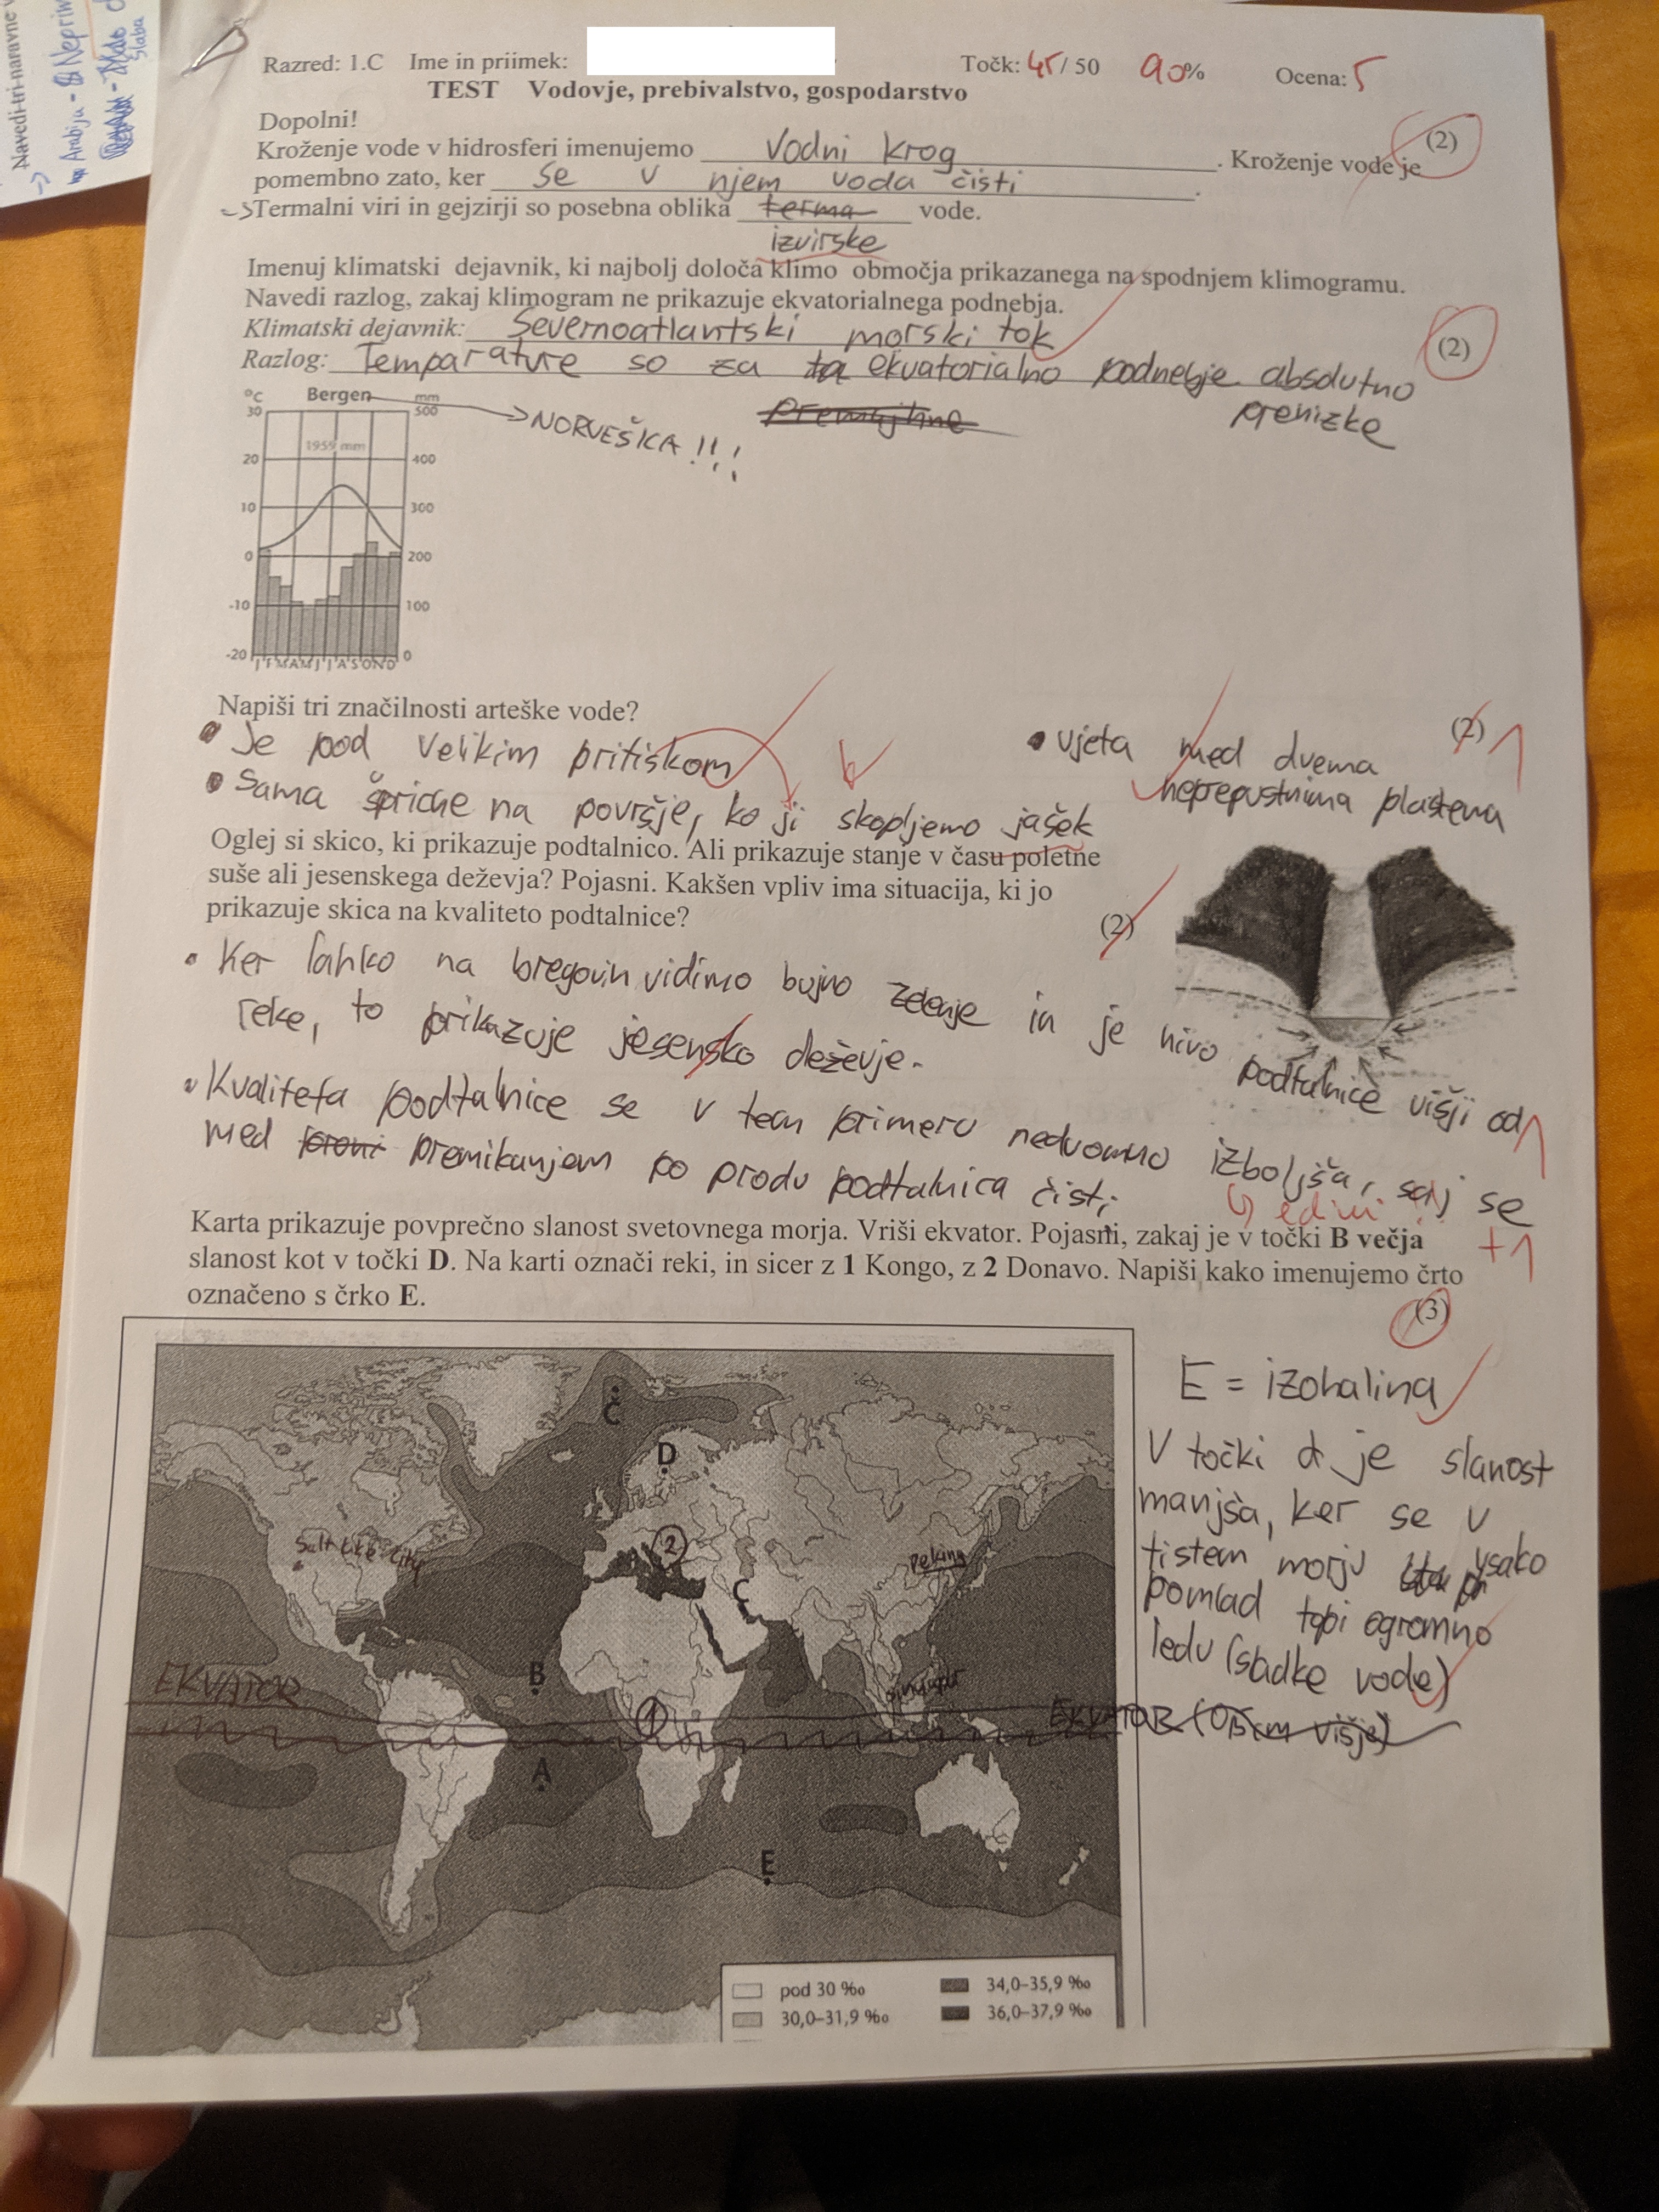 Navedi tri naravne
→ Arabija - Neprim
slaba
Razred: 1.C Ime in priimek:
Točk: 45/ 50 90% Ocena: 5
TEST Vodovje, prebivalstvo, gospodarstvo
Dopolni!
Kroženje vode v hidrosferi imenujemo Vodni krog. Kroženje vode je (2)
pomembno zato, ker se v njem voda čisti.
→Termalni viri in gejzirji so posebna oblika terma vode.
izvirske
Imenuj klimatski dejavnik, ki najbolj določa klimo območja prikazanega na spodnjem klimogramu.
Navedi razlog, zakaj klimogram ne prikazuje ekvatorialnega podnebja.
Klimatski dejavnik: Severnoatlantski morski tok
Razlog: Temparature so za ta ekvatorialno podnebje absolutno (2)
prenizke
°C Bergen mm
→NORVEŠKA !!!
30 500
1959 mm
20 400
10 300
0 200
-10 100
-20 0
J F M A M J J A S O N D
Napiši tri značilnosti arteške vode? (2) 1
• Je pod velikim pritiskom
• ujeta med dvema
neprepustnima plastema
• Sama špricne na površje, ko ji skopljemo jašek
Oglej si skico, ki prikazuje podtalnico. Ali prikazuje stanje v času poletne
suše ali jesenskega deževja? Pojasni. Kakšen vpliv ima situacija, ki jo
prikazuje skica na kvaliteto podtalnice? (2)
• Ker lahko na bregovih vidimo bujno zelenje in je nivo podtalnice višji od 1
reke, to prikazuje jesensko deževje.
• Kvaliteta podtalnice se v tem primeru nedvomno izboljša, saj se
med premikanjem po produ podtalnica čisti
+1
Karta prikazuje povprečno slanost svetovnega morja. Vriši ekvator. Pojasni, zakaj je v točki B večja
slanost kot v točki D. Na karti označi reki, in sicer z 1 Kongo, z 2 Donavo. Napiši kako imenujemo črto
označeno s črko E. (3)
E = izohalina
V točki d je slanost
manjša, ker se v
tistem morju vsako
pomlad topi ogromno
ledu (sladke vode)
Č
D
Salt Lake City
2
Peking
C
B
Singapur
EKVATOR
1
EKVATOR (0,5cm višje)
A
E
pod 30 ‰
30,0–31,9 ‰
34,0–35,9 ‰
36,0–37,9 ‰